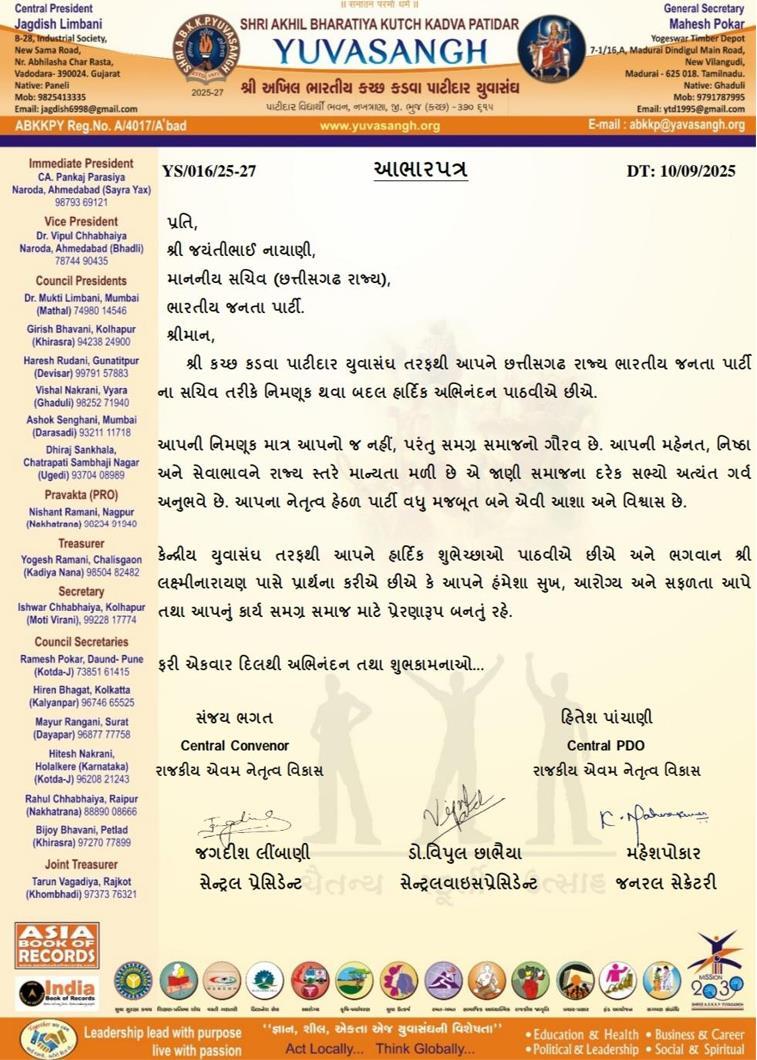 ॥ सनातन परमो धर्मः ॥
Central President
Jagdish Limbani
B-28, Industrial Society,
New Sama Road,
Nr. Abhilasha Char Rasta,
Vadodara- 390024. Gujarat
Native: Paneli
Mob: 9825413335
Email: jagdish6998@gmail.com
ABKKPY Reg.No. A/4017/A'bad
2025-27
SHRI AKHIL BHARATIYA KUTCH KADVA PATIDAR
YUVASANGH
શ્રી અખિલ ભારતીય કચ્છ કડવા પાટીદાર યુવાસંઘ
પાટીદાર વિદ્યાર્થી ભવન, નખત્રાણા, જી. ભુજ (કચ્છ) -૩૭૦ ૬૧૫
www.yuvasangh.org
General Secretary
Mahesh Pokar
Yogeswar Timber Depot
7-1/16,A, Madurai Dindigul Main Road,
New Vilangudi,
Madurai - 625 018. Tamilnadu.
Native: Ghaduli
Mob: 9791787995
Email: ytd1995@gmail.com
E-mail : abkkp@yavasangh.org
Immediate President
CA. Pankaj Parasiya
Naroda, Ahmedabad (Sayra Yax)
98793 69121
Vice President
Dr. Vipul Chhabhaiya
Naroda, Ahmedabad (Bhadli)
78744 90435
Council Presidents
Dr. Mukti Limbani, Mumbai
(Mathal) 74980 14546
Girish Bhavani, Kolhapur
(Khirasra) 94238 24900
Haresh Rudani, Gunatitpur
(Devisar) 99791 57883
Vishal Nakrani, Vyara
(Ghaduli) 98252 71940
Ashok Senghani, Mumbai
(Darasadi) 93211 11718
Dhiraj Sankhala,
Chatrapati Sambhaji Nagar
(Ugedi) 93704 08989
Pravakta (PRO)
Nishant Ramani, Nagpur
(Nakhatrana) 90234 91940
Treasurer
Yogesh Ramani, Chalisgaon
(Kadiya Nana) 98504 82482
Secretary
Ishwar Chhabhaiya, Kolhapur
(Moti Virani), 99228 17774
Council Secretaries
Ramesh Pokar, Daund- Pune
(Kotda-J) 73851 61415
Hiren Bhagat, Kolkatta
(Kalyanpar) 96746 65525
Mayur Rangani, Surat
(Dayapar) 96877 77758
Hitesh Nakrani,
Holalkere (Karnataka)
(Kotda-J) 96208 21243
Rahul Chhabhaiya, Raipur
(Nakhatrana) 88890 08666
Bijoy Bhavani, Petlad
(Khirasra) 97270 77899
Joint Treasurer
Tarun Vagadiya, Rajkot
(Khombhadi) 97373 76321
YS/016/25-27 આભારપત્ર DT: 10/09/2025
પ્રતિ,
શ્રી જયંતીભાઈ નાયાણી,
માનનીય સચિવ (છત્તીસગઢ રાજ્ય),
ભારતીય જનતા પાર્ટી.
શ્રીમાન,
શ્રી કચ્છ કડવા પાટીદાર યુવાસંઘ તરફથી આપને છત્તીસગઢ રાજ્ય ભારતીય જનતા પાર્ટી
ના સચિવ તરીકે નિમણૂક થવા બદલ હાર્દિક અભિનંદન પાઠવીએ છીએ.
આપની નિમણૂક માત્ર આપનો જ નહીં, પરંતુ સમગ્ર સમાજનો ગૌરવ છે. આપની મહેનત, નિષ્ઠા
અને સેવાભાવને રાજ્ય સ્તરે માન્યતા મળી છે એ જાણી સમાજના દરેક સભ્યો અત્યંત ગર્વ
અનુભવે છે. આપના નેતૃત્વ હેઠળ પાર્ટી વધુ મજબૂત બને એવી આશા અને વિશ્વાસ છે.
કેન્દ્રીય યુવાસંઘ તરફથી આપને હાર્દિક શુભેચ્છાઓ પાઠવીએ છીએ અને ભગવાન શ્રી
લક્ષ્મીનારાયણ પાસે પ્રાર્થના કરીએ છીએ કે આપને હંમેશા સુખ, આરોગ્ય અને સફળતા આપે
તથા આપનું કાર્ય સમગ્ર સમાજ માટે પ્રેરણારૂપ બનતું રહે.
ફરી એકવાર દિલથી અભિનંદન તથા શુભકામનાઓ...
સંજય ભગત હિતેશ પાંચાણી
Central Convenor Central PDO
રાજકીય એવમ નેતૃત્વ વિકાસ રાજકીય એવમ નેતૃત્વ વિકાસ
જગદીશ લીંબાણી ડો.વિપુલ છાભૈયા મહેશપોકાર
સેન્ટ્રલ પ્રેસિડેન્ટ સેન્ટ્રલવાઇસપ્રેસિડેન્ટ જનરલ સેક્રેટરી
ASIA
BOOK OF
RECORDS
India
Book of Records
MISSION
2030
Leadership lead with purpose
live with passion
"જ્ઞાન, શીલ, એકતા એજ યુવાસંઘની વિશેષતા"
Act Locally... Think Globally...
• Education & Health • Business & Career
• Political & Leadership • Social & Spiritual